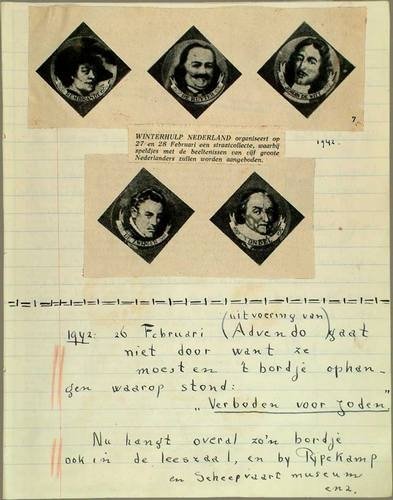 REMBRANDT
DE RUYTER
JAN DE WIT
7.
WINTERHULP NEDERLAND organiseert op
27 en 28 Februari een straatcollecte, waarbij
speldjes met de beeltenissen van vijf groote
Nederlanders zullen worden aangeboden.
1942.
DE ZWIJGER
VONDEL
(uitvoering van)
1942: 26 Februari Advendo gaat
niet door want ze
moesten 't bordje ophan-
gen waarop stond:
"Verboden voor Joden"
Nu hangt overal zo'n bordje
ook in de leeszaal, en by Rijpekamp
en Scheepvaart museum
enz.